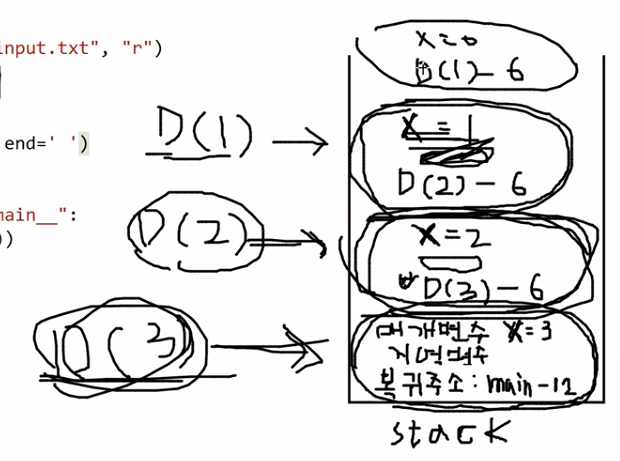 input.txt", "r")
end=' ')
main__":
))
x=0
D(1)-6
D(1)
x=1
D(2)-6
D(2)
x=2
D(3)-6
D(3)
매개변수 x=3
지역변수
복귀주소: main-12
stack